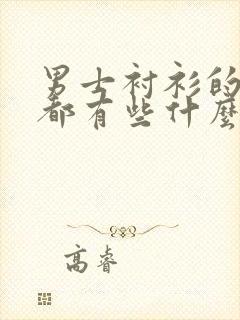 男士衬衫的
都有些什麼
高睿